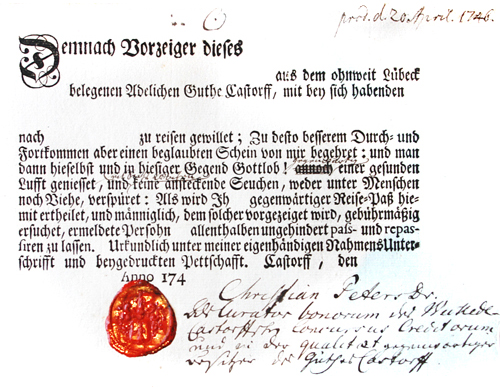 prod. d. 20 April. 1746.
Demnach Vorzeiger dieses
aus dem ohnweit Lübeck
belegenen Adelichen Guthe Castorff, mit bey sich habenden
nach zu reisen gewillet; Zu desto besserem Durch- und
Fortkommen aber einen beglaubten Schein von mir begehret: und man
dann hieselbst und in hiesiger Gegend Gottlob! annoch einer gesunden
Lufft geniesset, und keine ansteckende Seuchen, weder unter Menschen
noch Viehe, verspüret: Als wird Ih gegenwärtiger Reise-Paß hie-
mit ertheilet, und männiglich, dem solcher vorgezeiget wird, gebührmäßig
ersuchet, ermeldete Persohn allenthalben ungehindert paß- und repas-
siren zu lassen. Urkundlich unter meiner eigenhändigen Nahmens Unter-
schrifft und beygedruckten Pettschafft. Castorff, den
Anno 174
Christian Peters Dr.
Curator bonorum des
Castorffschen Concursus Creditorum
und in der qualitet gegenwärtiger
besitzer des Guthes Castorff.